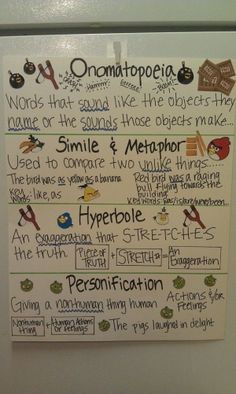 Onomatopoeia
Words that sound like the objects they
name or the sounds those objects make...
Simile & Metaphor
Used to compare two unlike things.....
The bird was as yellow as a banana
Key Words: like, as
Red bird was a raging
bull flying towards the
building.
Key words: was/is/are/were/been
Hyperbole
An exaggeration that S-T-R-E-T-C-H-E-S
the truth.
PIECE OF TRUTH + STRETCH IT = An Exaggeration
Personification
Giving a nonhuman thing human
Actions &/or
Feelings
Nonhuman thing + Human Actions or Feelings
The pigs laughed in delight